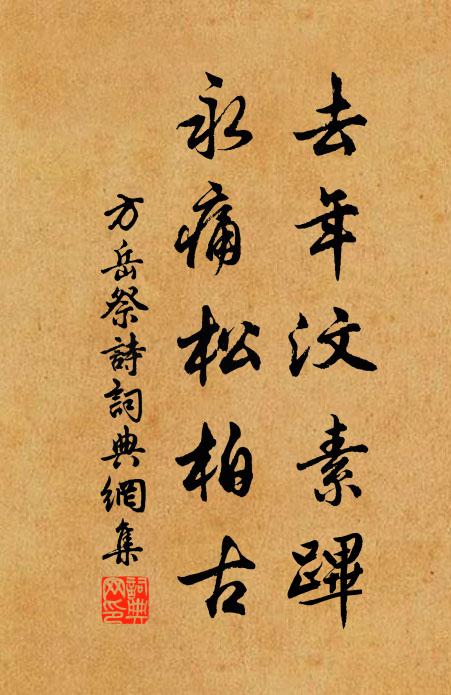 去年汶素蹕
永痛松柏古
方岳祭詩詞典網集